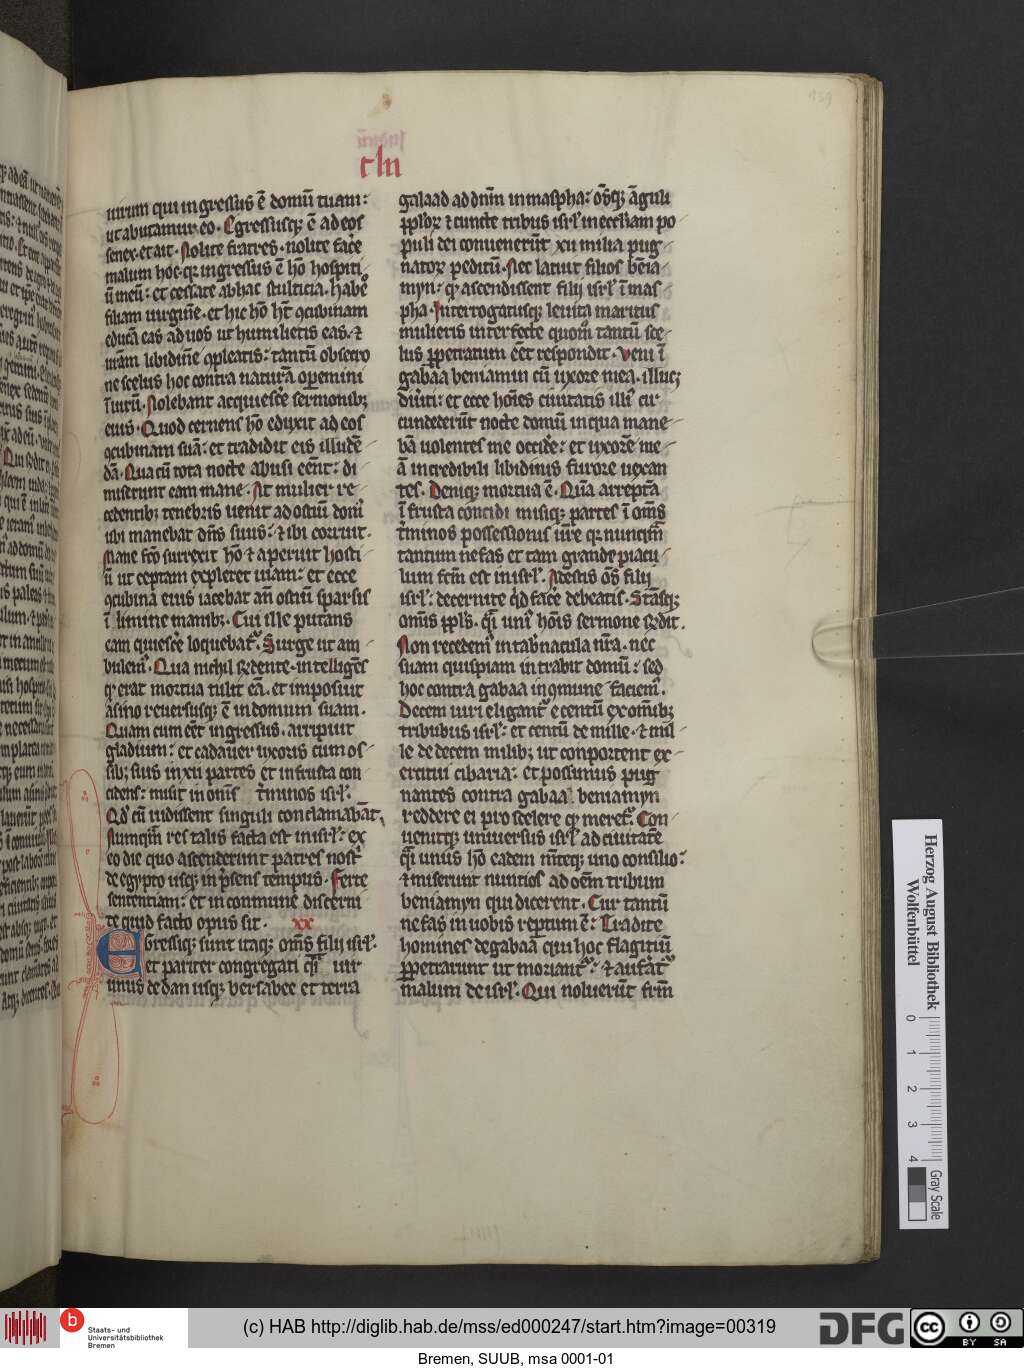 clii
uirum qui ingressus ē domū tuam:
ut abutamur eo. Egressusq; ē ad eos
senex et ait. Nolite fratres. nolite facͤe
malum hoc. qꝛ ingressus ē hō hospiti
ū meū: et cessate ab hac stulticia. Habeͦ
filiam uirginē. et hic hō hꝫ ꝯcubinam
educā eas ad uos ut humilietis eas. ⁊
uram̄ libidinē ꝯpleatis: tantū obsecro
ne scelus hoc contra naturā opemini
ī uirū. Nolebant acquiescͤe sermonibꝫ
eius. Quod cernens hō eduxit ad eos
ꝯcubinam suā: et tradidit eis illudē
dā. Qua cū tota nocte abusi eēnt: di
miserunt eam mane. At mulier re
cedentibꝫ tenebris uenit ad ostiū domꝰ
ubi manebat dn̄s suus: ⁊ ibi corruit.
Mane fcō surrexit hō ⁊ aperuit hosti
ū ut ceptam expleret uiam: et ecce
ꝯcubina eius iacebat an̄ ostiū sparsis
ī limine manibꝫ. Cui ille putans
eam quiescͤe loquebat᷑. Surge ut am
bulemꝰ. Qua nichil rn̄dente. intelligēs
ꝙ erat mortua tulit eā. et imposuit
asino reuersusq; ē in domum suam.
Quam cum eēt ingressus. arripuit
gladium: et cadauer uxoris cum os
sibꝫ suis in xii partes et in frusta con
cidens: misit in om̄s t̄minos isrl̄.
Qd̓ cū uidissent singuli conclamabāt.
Numqͣm res talis facta est in isrl̄: ex
eo die quo ascenderunt patres nostͥ
de egypto usq; in p̄sens tempus. Ferte
sententiam: et in commune discerni
te quid facto opus sit. xx
Egressiq; sunt itaq; om̄s filii isrl̄.
et pariter congregati qͣi uir
unus de dan usq; bersabee et terra
galaad ad dn̄m in maspha: ōsq; āguli
pp̄lorꝝ ⁊ cuncte tribus isrl̄ in ecclīam po
puli dei conuenerūt xii milia pug
natorꝝ peditū. Nec latuit filios benia
myn: ꝙ ascendissent filii isrl̄ ī mas
pha. Interrogatusq; leuita maritus
mulieris interfecte quomͦ tantū sce
lus ꝑpetratum eēt respondit. Veni ī
gabaa beniamin cū uxore mea. illucq;
diūti: et ecce hoīes ciuitatis illiꝰ cir
cundederūt nocte domū in qua mane
bā uolentes me occidͤe: et uxorē me
ā incredibili libidinis furore uexan
tes. Deniq; mortua ē. Quā arreptā
ī frusta concidi misiq; partes ī om̄s
t̄minos possessionis ur̄e qꝛ nunqͣm
tantum nefas et tam grande piacu
lum fcm̄ est in isrl̄. Adestis om̄s filii
isrl̄: decernite qͥd facͤe debeatis. Stansq;
om̄s pp̄ls. qͣi unꝰ hōis sermone rn̄dit.
Non recedemꝰ in tab̄nacula nr̄a. nec
suam quispiam intrabit domū: sed
hoc contra gabaa in ꝯmune faciemꝰ.
Decem uiri eligant᷑ e centū ex om̄ibꝫ
tribubus isrl̄: et centū de mille. ⁊ mil
le de decem milibꝫ ut conportent ex
ercitui cibaria: et possimus pug
nantes contra gabaa beniamyn
reddere ei pro scelere ꝙ meret᷑. Con
uenitq; uniuersus isrl̄ ad ciuitatē
qͣi unus hō eadem m̄teq; uno consilio:
⁊ miserunt nuntios ad oēm tribum
beniamyn qui dicerent. Cur tantū
nefas in uobis rep̄tum ē: Tradite
homines de gabaa qui hoc flagitiū
ꝑpetrarunt ut moriant᷑: ⁊ aufer̄at᷑
malum de isrl̄. Qui noluerūt frm̄
Herzog August Bibliothek
Wolfenbüttel
0 1 2 3 4
Gray Scale
Staats- und
Universitätsbibliothek
Bremen
(c) HAB http://diglib.hab.de/mss/ed000247/start.htm?image=00319
DFG
cc BY SA
Bremen, SUUB, msa 0001-01